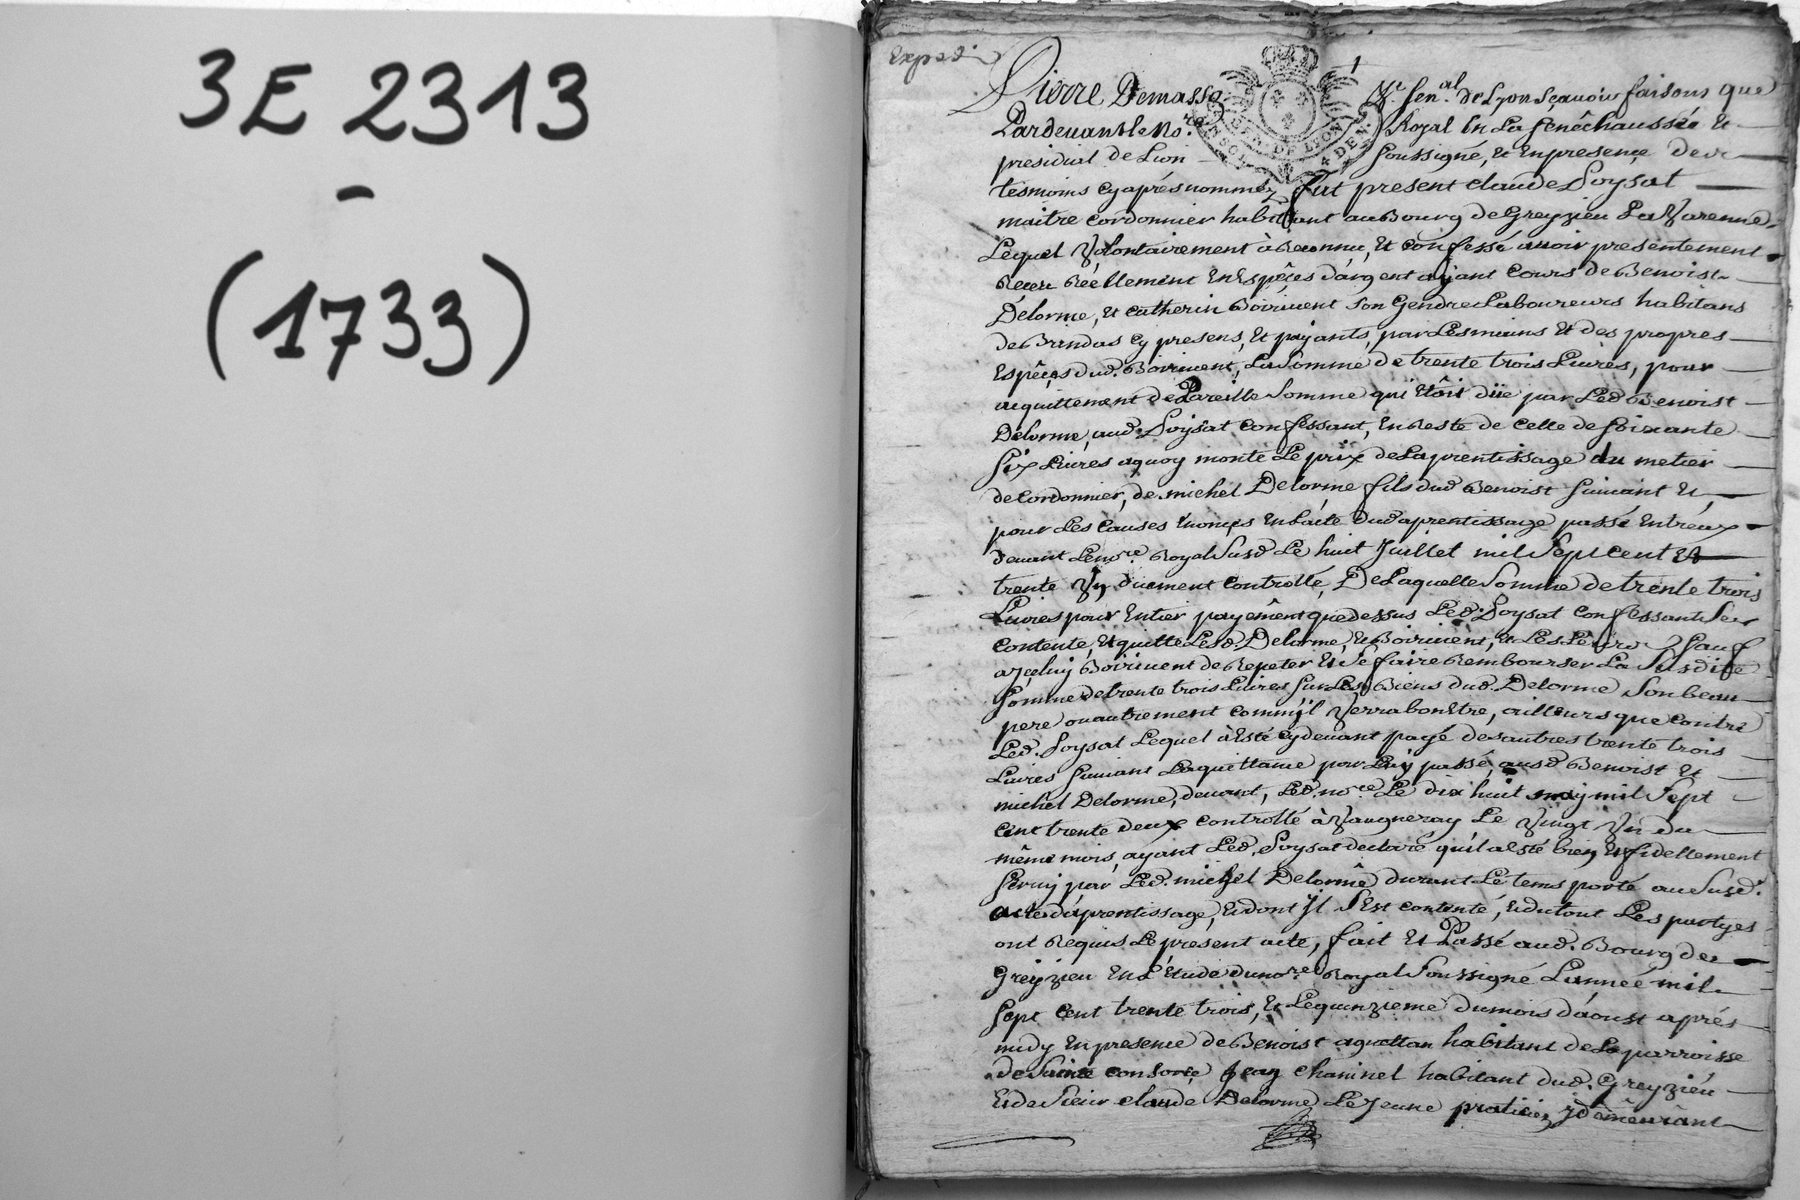 3E 2313
-
(1733)
Exped.
1
Pierre Demasso Mr. Sen.al de Lyon Sçavoir faisons que
Pardevant le No.re Royal En La senêchaussée Et
presidial de Lion Soussigné, Et En presence des
tesmoins cyaprés nommez fut present claude Loysat
maitre cordonnier habitant au Bourg de Greyzieu La Varenne,
Lequel Volontairement à Reconnu, Et confessé avoir presentement
Receu Réellement En Espêces d'argent ayant cours de Benoist
Delorme, Et catherin Boirivent son Gendre Laboureurs habitans
de Brindas cy presens, Et payants, par Les mains Et des propres
Espêces dud. Boirivent, La Somme de trente trois Livres, pour
aquittement de Pareille Somme qui Etôit düe par Led Benoist
Delorme, aud. Loysat confessant, En Reste de celle de Soixante
Six Livres aquoy monte Le prix de Laprentissage du metier
de Cordonnier, de michel Delorme fils dud Benoist Suivant Et
pour Les causes Enonçés En Lacte dud aprentissage passé Entreux
devant Le no.re Royal Susd Le huit Juillet mil Sept cent Et
trente Un duement controllé, De Laquelle Somme de trente trois
Livres pour Entier payemênt que dessus Led. Loysat confessant S'en
contente, Et quitte Lesd. Delorme, Et Boirivent, Et Les Leurs Sauf
a Jceluy Boirivent de Repeter Et Se faire Rembourser La Susdite
Somme de trente trois Livres Sur Les Biens dud. Delorme Son beau
pere ou autrement comm'jl Verra bon Etre, ailleurs que contre
Led. Loysat Lequel à Esté cydevant payé des autres trente trois
Livres Suivant Laquittance par Luy passé, ausd Benoist Et
michel Delorme, devant, Led. no.re Le dix huit may mil Sept
cent trente deux controllé à Vaugneray Le Vingt Un du
même mois, ayant Led. Loysat declaré qu'il a Esté bien Et fidellement
Servy par Led. michel Delorme durant Le tems porté au Susd.
acte d'aprentissage, Et dont Jl S'Est contenté, Et du tout Les partyes
ont Requis Le present acte, fait Et Passé aud. Bourg de
Greyzieu En L'Etude du no.re Royal Soussigné L'année mil
Sept cent trente trois, Et Le quinzieme du mois d'aoust aprés
midy En presence de Benoist aguettan habitant de La parroisse
de Sainte Consorce Jean Chaninel habitant dud. Greyziéu
Et de Sieur claude Delorme Le Jeune praticien Y demeurant